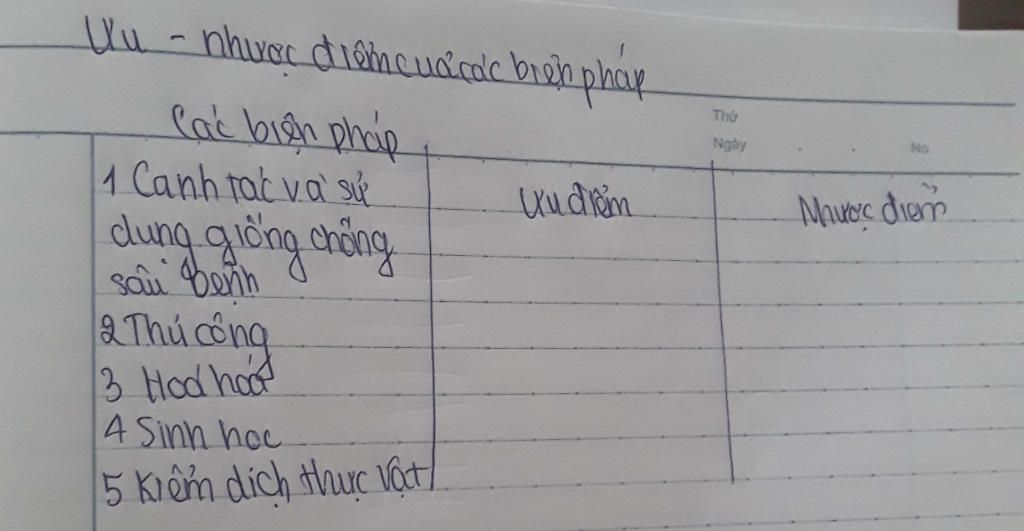 Ưu - nhược điểm của các biện pháp
Thứ
Ngày
No.
Các biện pháp
Ưu điểm
Nhược điểm
1 Canh tác và sử
dụng giống chống
sâu bệnh
2 Thủ công
3 Hoá học
4 Sinh học
5 Kiểm dịch thực vật